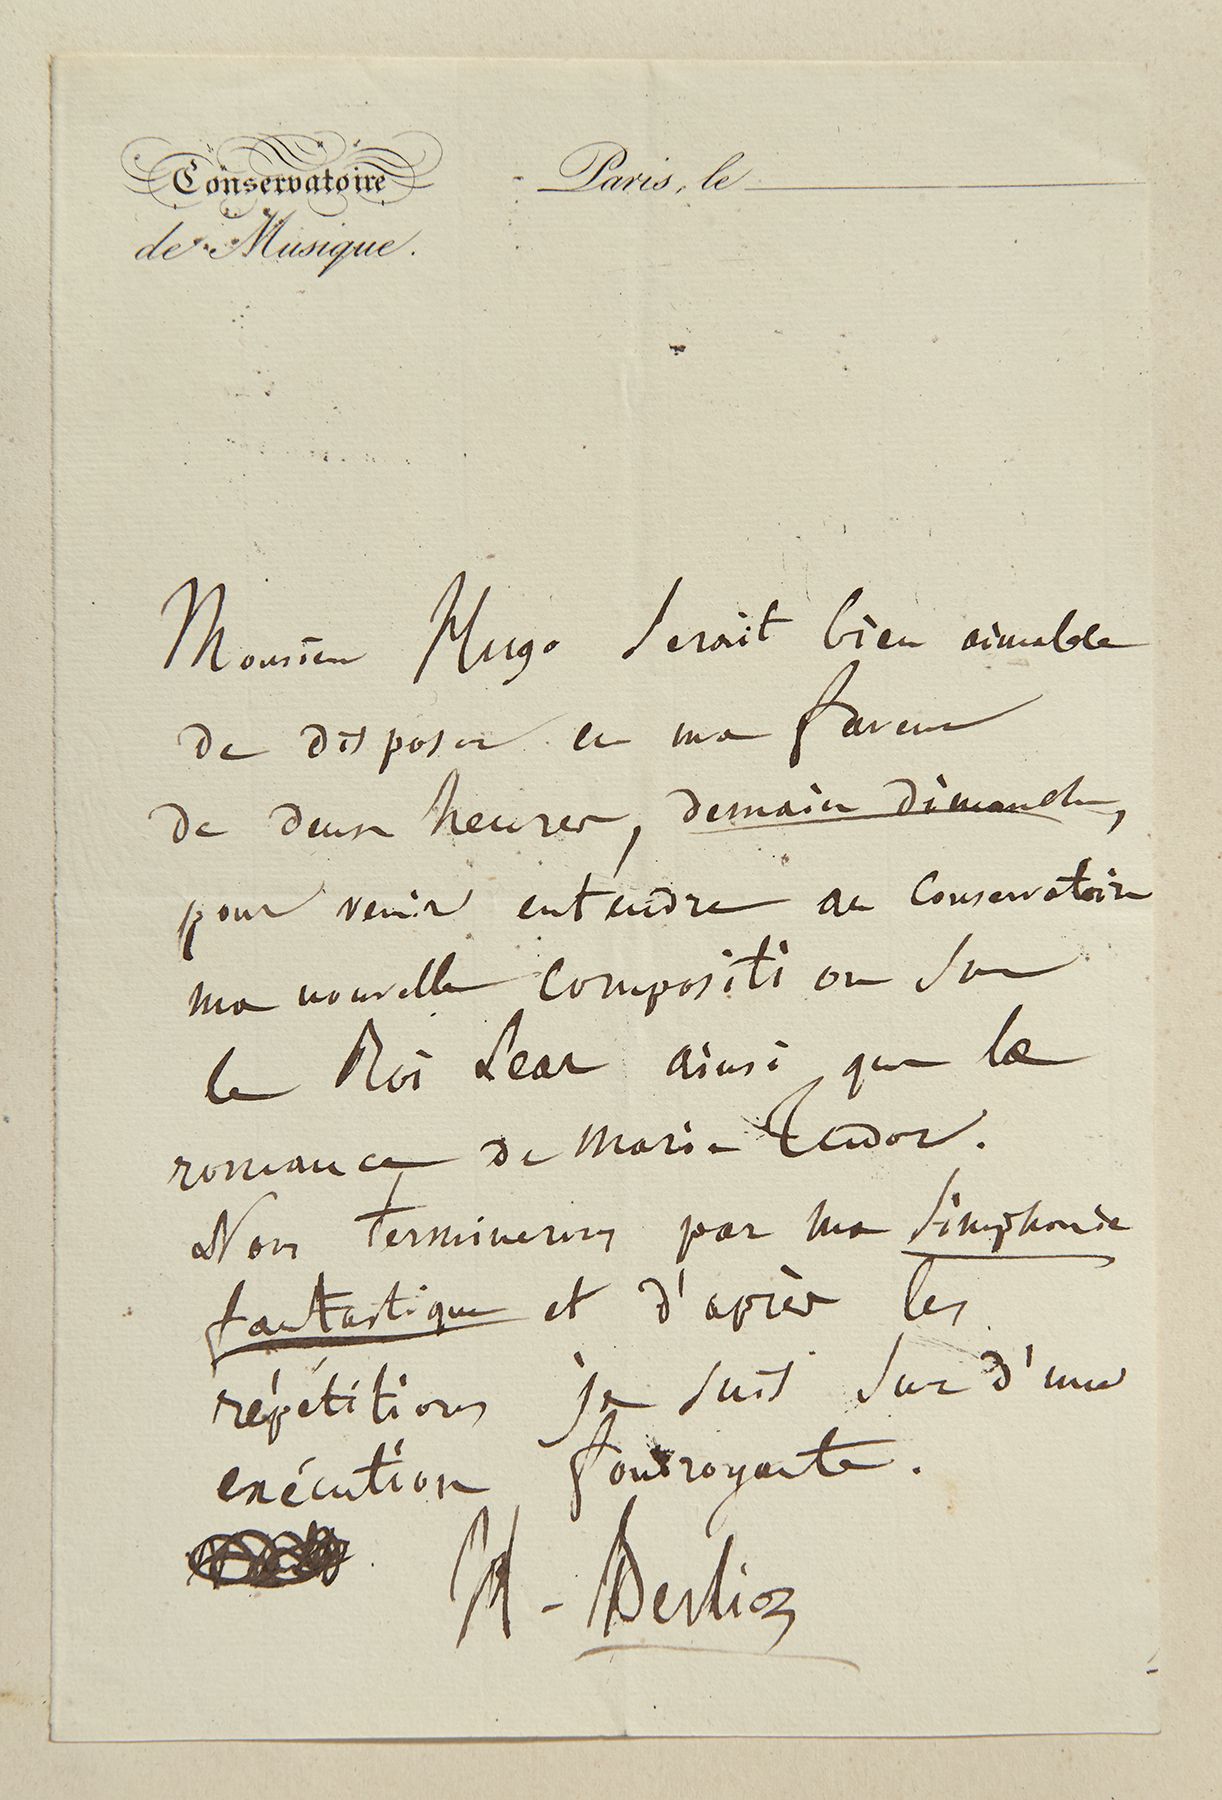 Conservatoire
de Musique.
Paris, le
Monsieur Hugo serait bien aimable
de disposer en ma faveur
de deux heures, demain dimanche,
pour venir entendre au Conservatoire
ma nouvelle composition sur
le Roi Lear ainsi que la
romance de Marie Tudor.
Nous terminerons par ma simphonie
fantastique et d'après les
répétitions je suis sur d'une
exécution foudroyante.
H. Berlioz